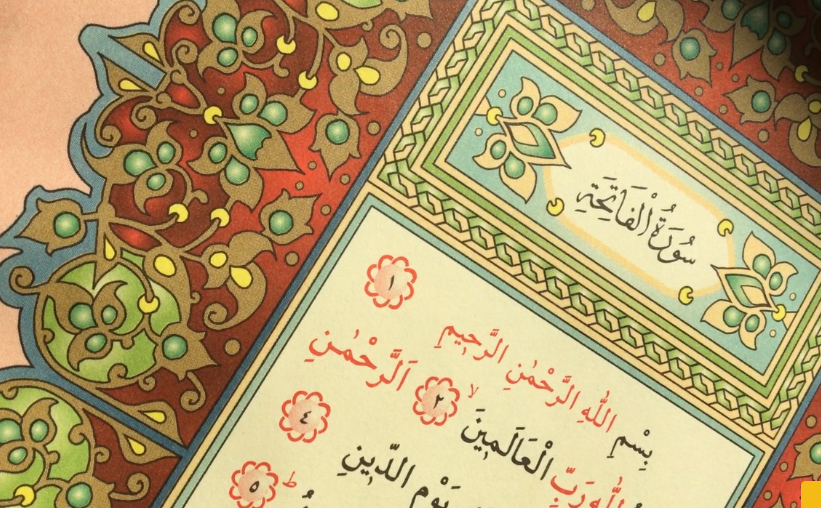 سُورَةُ الْفَاتِحَةِ
بِسْمِ اللّٰهِ الرَّحْمٰنِ الرَّحِيمِ ١
رَبِّ الْعَالَمِينَۙ ٢ اَلرَّحْمٰنِ
يَوْمِ الدِّينِ ٤
ط ٥